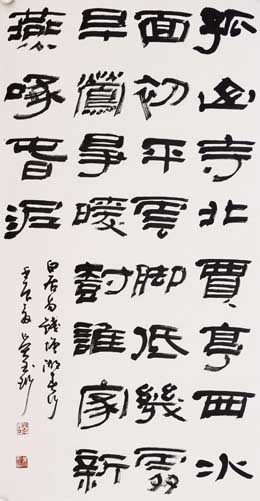 孤山寺北賈亭西水
面初平雲脚低幾處
早鶯爭暖樹誰家新
燕啄春泥
白居易錢塘湖春行